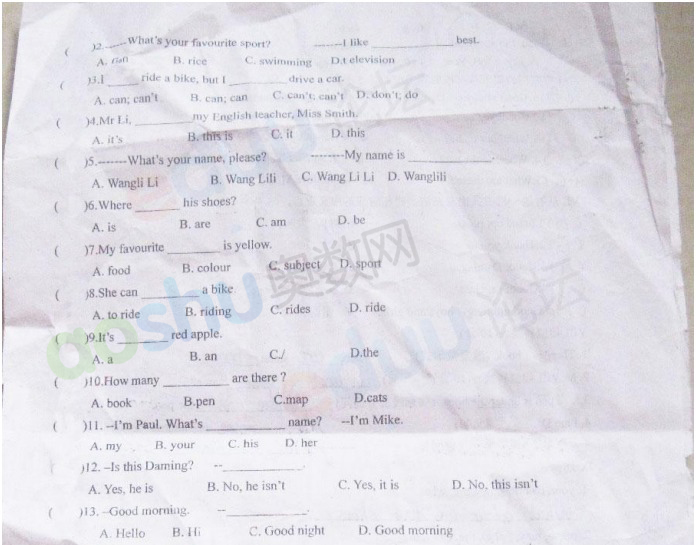 ( )2.------What's your favourite sport? ------I like ____________ best.
A. B. rice C. swimming D.t elevision
( )3.I _____ ride a bike, but I _________ drive a car.
A. can; can't B. can; can C. can't; can't D. don't; do
( )4.Mr Li, _________my English teacher, Miss Smith.
A. it's B. this is C. it D. this
( )5.-------What's your name, please? --------My name is _____________.
A. Wangli Li B. Wang Lili C. Wang Li Li D. Wanglili
( )6.Where _______ his shoes?
A. is B. are C. am D. be
( )7.My favourite ________ is yellow.
A. food B. colour C. subject D. sport
( )8.She can _________ a bike
A. to ride B. riding C. rides D. ride
( )9.It's ________ red apple.
A. a B. an C./ D.the
( )10.How many __________ are there ?
A. book B.pen C.map D.cats
( )11. --I'm Paul. What's ____________ name? --I'm Mike.
A. my B. your C. his D. her
)12. --Is this Daming? --____________.
A. Yes, he is B. No, he isn't C. Yes, it is D. No, this isn't
( )13. --Good morning. --____________.
A. Hello B. Hi C. Good night D. Good morning
aoshu奥数网
eduu论坛